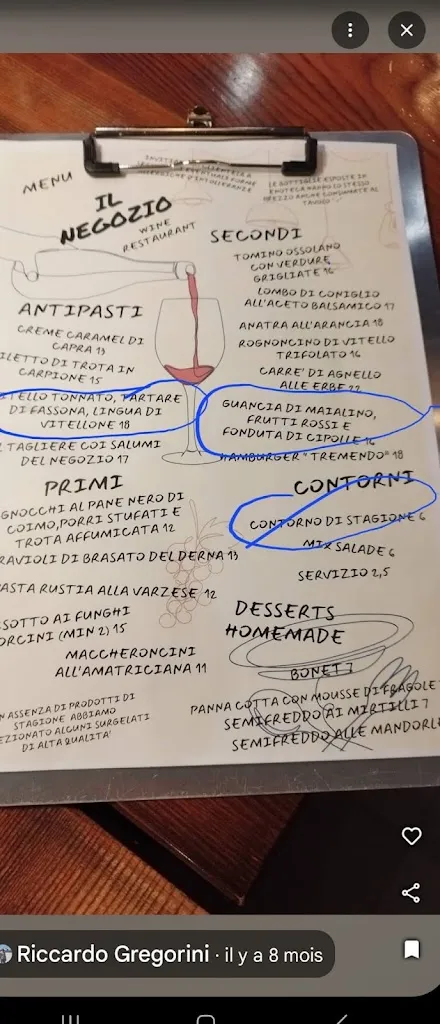 MENU
IL
NEGOZIO
WINE
RESTAURANT
LE BOTTIGLIE ESPOSTE IN
ENOTECA HANNO LO STESSO
PREZZO ANCHE CONSUMATE AL
TAVOLO
ANTIPASTI
CREME CARAMEL DI
CAPRA 13
ILETTO DI TROTA IN
CARPIONE 15
TELLO TONNATO, TARTARE
DI FASSONA, LINGUA DI
VITELLONE 18
TAGLIERE COI SALUMI
DEL NEGOZIO 17
PRIMI
GNOCCHI AL PANE NERO DI
COIMO, PORRI STUFATI E
TROTA AFFUMICATA 12
RAVIOLI DI BRASATO DEL DERNA 13
ASTA RUSTIA ALLA VARZESE 12
SOTTO AI FUNGHI
ORCINI (MIN 2) 15
MACCHERONCINI
ALL'AMATRICIANA 11
N ASSENZA DI PRODOTTI DI
STAGIONE ABBIAMO
EZIONATO ALCUNI SURGELATI
DI ALTA QUALITA'
SECONDI
TOMINO OSSOLANO
CON VERDURE
GRIGLIATE 16
LOMBO DI CONIGLIO
ALL'ACETO BALSAMICO 17
ANATRA ALL'ARANCIA 18
ROGNONCINO DI VITELLO
TRIFOLATO 16
CARRE' DI AGNELLO
ALLE ERBE 22
GUANCIA DI MAIALINO,
FRUTTI ROSSI E
FONDUTA DI CIPOLLE 16
HAMBURGER "TREMENDO" 18
CONTORNI
CONTORNO DI STAGIONE 6
MIX SALADE 6
SERVIZIO 2,5
DESSERTS
HOMEMADE
BONET 7
PANNA COTTA CON MOUSSE DI FRAGOLE
SEMIFREDDO AI MIRTILLI 7
SEMIFREDDO ALLE MANDORLE
Riccardo Gregorini · il y a 8 mois